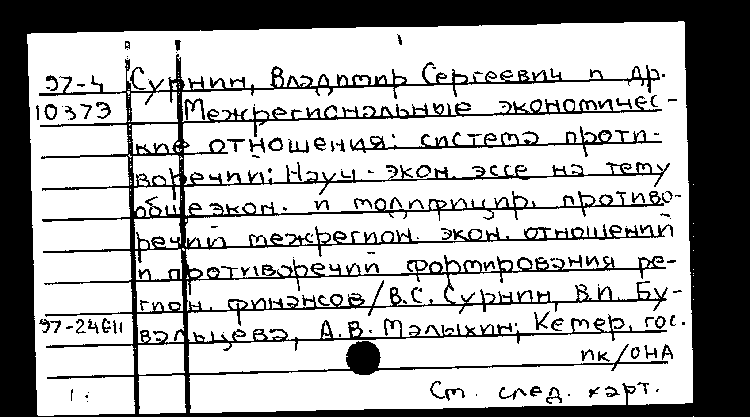 97-4 Сурнин, Владимир Сергеевич и др.
10379 Межрегиональные экономичес-
кие отношения: система проти-
воречий: Науч.-экон. эссе на тему
общеэкон. и модифицир. противо-
речий межрегион. экон. отношений
и противоречий формирования ре-
гион. финансов/В.С. Сурнин, В.П. Бу-
вальцева, А.В. Малыхин; Кемер. гос.
пк/ОНА
1. См. след. карт.